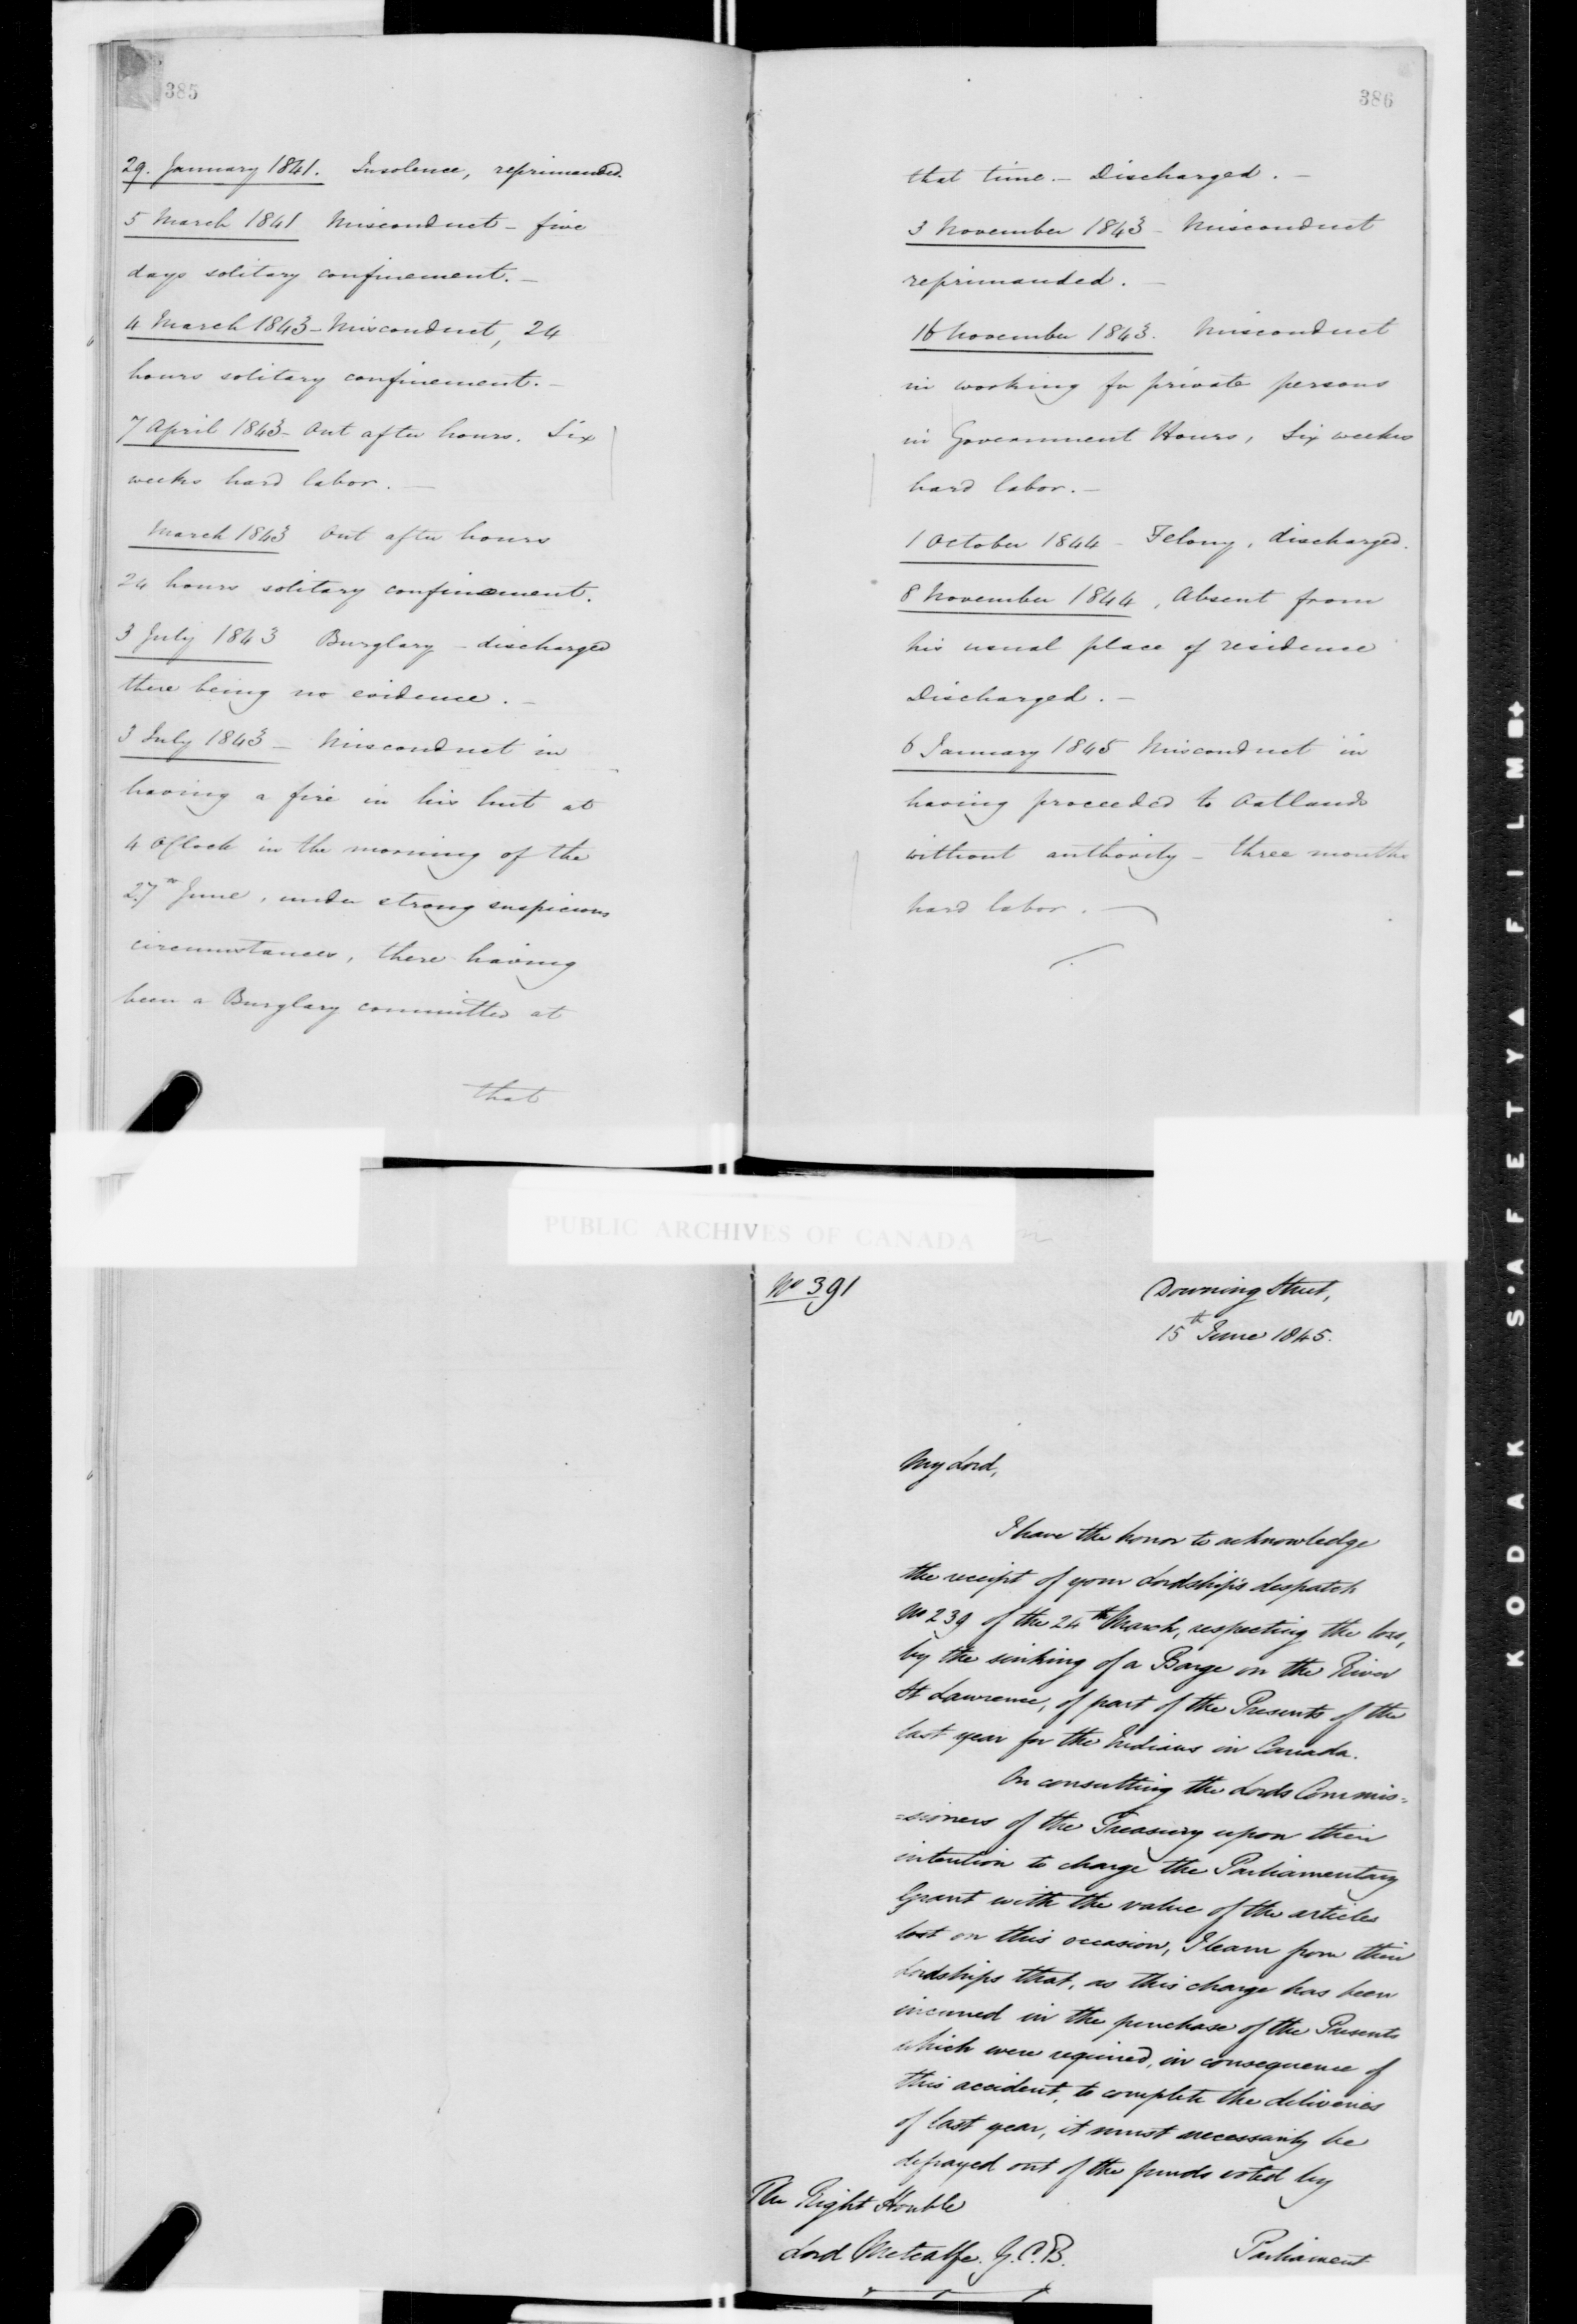 385
29. January 1841. Insolence, reprimanded.
5 March 1841 Misconduct - five
days solitary confinement. -
4 March 1843 - Misconduct, 24
hours solitary confinement. -
7 April 1843 - Out after hours. Six
weeks hard labor. -
March 1843 Out after hours
24 hours solitary confinement.
3 July 1843 Burglary - discharged
there being no evidence. -
3 July 1843 - Misconduct in
having a fire in his hut at
4 OClock in the morning of the
27th June, under strong suspicious
circumstances, there having
been a Burglary committed at
that
386
that time. - Discharged. -
3 November 1843 - Misconduct
reprimanded. -
16 November 1843. Misconduct
in working for private persons
in Government Hours, Six weeks
hard labor. -
1 October 1844 - Felony, discharged.
8 November 1844, Absent from
his usual place of residence
Discharged. -
6 January 1845 Misconduct in
having proceeded to Oatlands
without authority - three months
hard labor. -
PUBLIC ARCHIVES OF CANADA
No 391
Downing Street,
15th June 1845.
My Lord,
I have the honor to acknowledge
the receipt of your Lordship's despatch
No 239 of the 24th March, respecting the loss,
by the sinking of a Barge on the River
St Lawrence, of part of the Presents of the
last year for the Indians in Canada.
On consulting the Lords Commis=
=sioners of the Treasury upon their
intention to charge the Parliamentary
Grant with the value of the articles
lost on this occasion, I learn from their
Lordships that, as this charge has been
incurred in the purchase of the Presents
which were required, in consequence of
this accident, to complete the deliveries
of last year, it must necessarily be
defrayed out of the funds voted by
The Right Honble
Lord Metcalfe. G.C.B.
Parliament
KODAK S'AFETY FILM